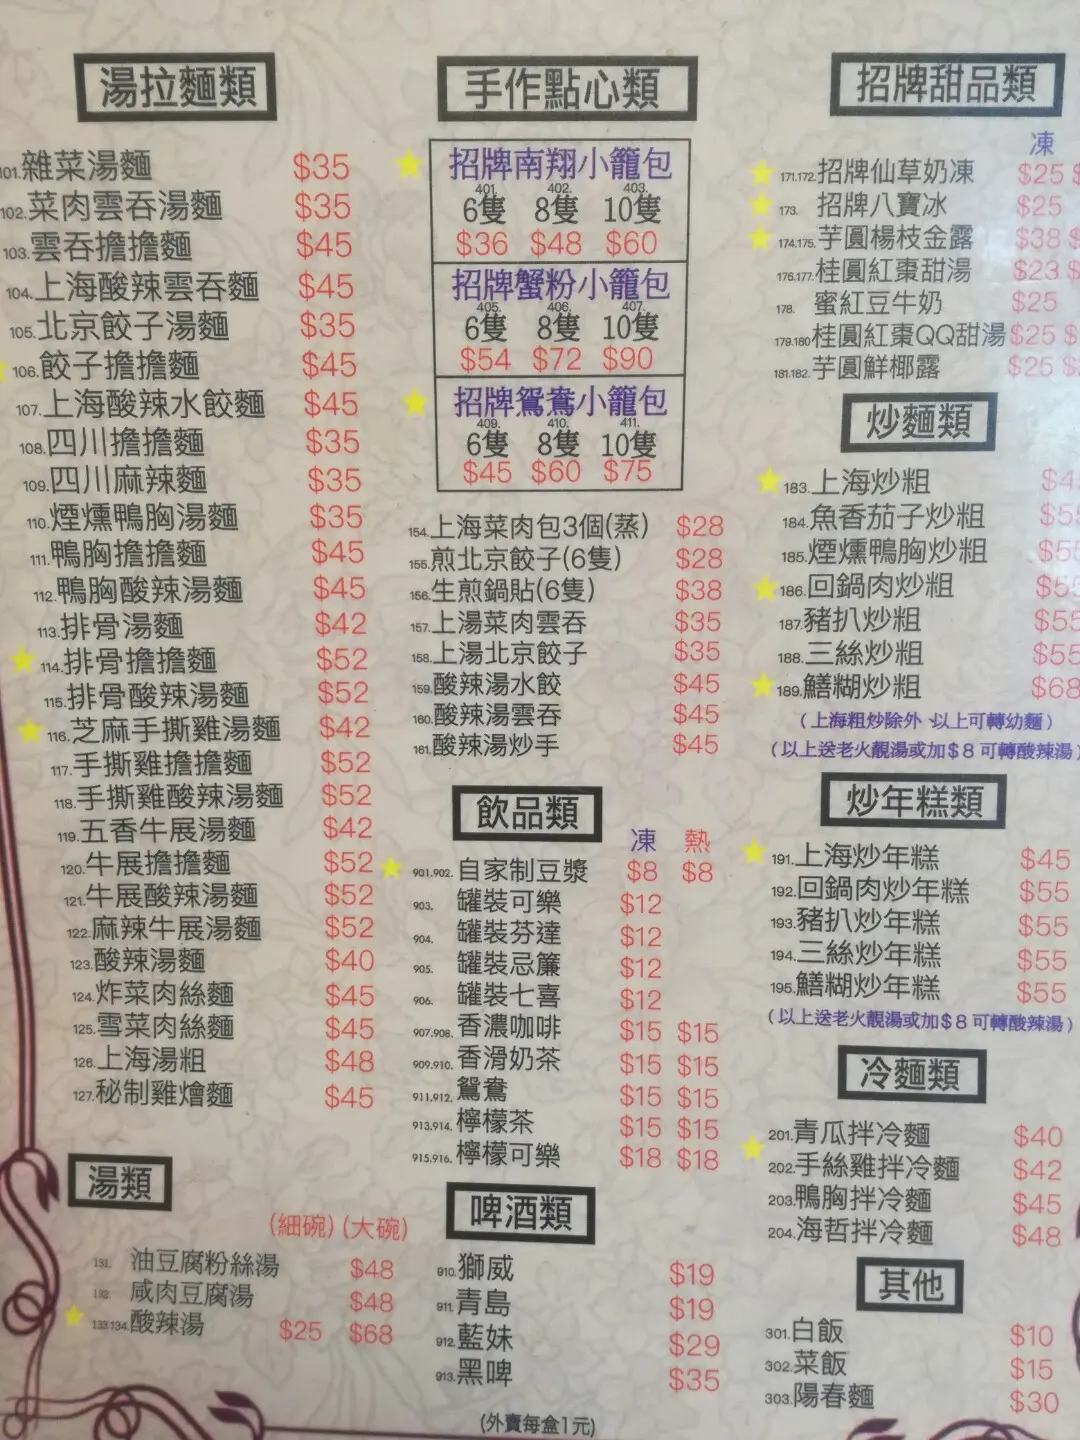 湯拉麵類
101.雜菜湯麵 $35
102.菜肉雲吞湯麵 $35
103.雲吞擔擔麵 $45
104.上海酸辣雲吞麵 $45
105.北京餃子湯麵 $35
106.餃子擔擔麵 $45
107.上海酸辣水餃麵 $45
108.四川擔擔麵 $35
109.四川麻辣麵 $35
110.煙燻鴨胸湯麵 $35
111.鴨胸擔擔麵 $45
112.鴨胸酸辣湯麵 $45
113.排骨湯麵 $42
114.排骨擔擔麵 $52
115.排骨酸辣湯麵 $52
116.芝麻手撕雞湯麵 $42
117.手撕雞擔擔麵 $52
118.手撕雞酸辣湯麵 $52
119.五香牛展湯麵 $42
120.牛展擔擔麵 $52
121.牛展酸辣湯麵 $52
122.麻辣牛展湯麵 $52
123.酸辣湯麵 $40
124.炸菜肉絲麵 $45
125.雪菜肉絲麵 $45
126.上海湯粗 $48
127.秘制雞燴麵 $45
湯類
(細碗) (大碗)
131. 油豆腐粉絲湯 $48
132. 咸肉豆腐湯 $48
133.134.酸辣湯 $25 $68
手作點心類
招牌南翔小籠包
401. 402. 403.
6隻 8隻 10隻
$36 $48 $60
招牌蟹粉小籠包
405. 406. 407.
6隻 8隻 10隻
$54 $72 $90
招牌鴛鴦小籠包
409. 410. 411.
6隻 8隻 10隻
$45 $60 $75
154.上海菜肉包3個(蒸) $28
155.煎北京餃子(6隻) $28
156.生煎鍋貼(6隻) $38
157.上湯菜肉雲吞 $35
158.上湯北京餃子 $35
159.酸辣湯水餃 $45
160.酸辣湯雲吞 $45
161.酸辣湯炒手 $45
飲品類
凍 熱
901.902.自家制豆漿 $8 $8
903. 罐裝可樂 $12
904. 罐裝芬達 $12
905. 罐裝忌簾 $12
906. 罐裝七喜 $12
907.908.香濃咖啡 $15 $15
909.910.香滑奶茶 $15 $15
911.912.鴛鴦 $15 $15
913.914.檸檬茶 $15 $15
915.916.檸檬可樂 $18 $18
啤酒類
910.獅威 $19
911.青島 $19
912.藍妹 $29
913.黑啤 $35
(外賣每盒1元)
招牌甜品類
凍
171.172.招牌仙草奶凍 $25
173. 招牌八寶冰 $25
174.175.芋圓楊枝金露 $38
176.177.桂圓紅棗甜湯 $23
178. 蜜紅豆牛奶 $25
179.180桂圓紅棗QQ甜湯 $25
181.182.芋圓鮮椰露 $25
炒麵類
183.上海炒粗
184.魚香茄子炒粗
185.煙燻鴨胸炒粗
186.回鍋肉炒粗
187.豬扒炒粗 $55
188.三絲炒粗 $55
189.鱔糊炒粗 $68
(上海粗炒除外 以上可轉幼麵)
(以上送老火靚湯或加$8可轉酸辣湯)
炒年糕類
191.上海炒年糕 $45
192.回鍋肉炒年糕 $55
193.豬扒炒年糕 $55
194.三絲炒年糕 $55
195.鱔糊炒年糕 $55
(以上送老火靚湯或加$8可轉酸辣湯)
冷麵類
201.青瓜拌冷麵 $40
202.手絲雞拌冷麵 $42
203.鴨胸拌冷麵 $45
204.海哲拌冷麵 $48
其他
301.白飯 $10
302.菜飯 $15
303.陽春麵 $30